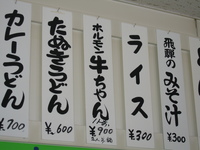 飛騨のみそ汁
¥300
ライス
¥300
ホルモン牛ちゃん
¥900
たぬきうどん
¥600
カレーうどん
¥700